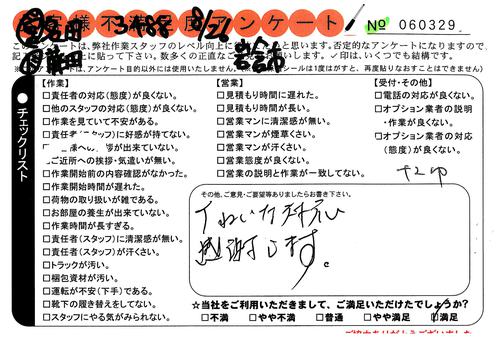 客様不満足度アンケート
3488 8/26
No 060329
このアンケートは、弊社作業スタッフのレベル向上に
と思います。否定的なアンケートになりますので、
に貼って下さい。数多くの正直な
✓印は、いくつでも結構です。
チェックリスト
【作業】
□責任者の対応(態度)が良くない。
□他のスタッフの対応(態度)が良くない。
□作業を見ていて不安がある。
□責任者(スタッフ)に好感が持てない。
が出来ていない。
ご近所への挨拶・気遣いが無い。
□作業開始前の内容確認がなかった。
□作業開始時間が遅れた。
□荷物の取り扱いが雑である。
□お部屋の養生が出来ていない。
□作業時間が長すぎる。
□責任者(スタッフ)に清潔感が無い。
□責任者(スタッフ)が汗くさい。
□トラックが汚い。
□梱包資材が汚い。
□運転が不安(下手)である。
□靴下の履き替えをしてない。
□スタッフにやる気がみられない。
【営業】
□見積もり時間に遅れた。
□見積もり時間が長い。
□営業マンに清潔感が無い。
□営業マンが煙草くさい。
□営業マンが汗くさい。
□営業態度が良くない。
□営業の説明と作業が一致してない。
【受付・その他】
□電話の対応が良くない。
□オプション業者の説明
・作業が良くない。
□オプション業者の対応
(態度)が良くない。
その他、ご意見・ご要望等ありましたらお書き下さい。
ていねいな対応
感謝します。
☆当社をご利用いただきまして、ご満足いただけたでしょうか?
□不満 □やや不満 □普通 □やや満足 □満足
ご協力ありがとうございました